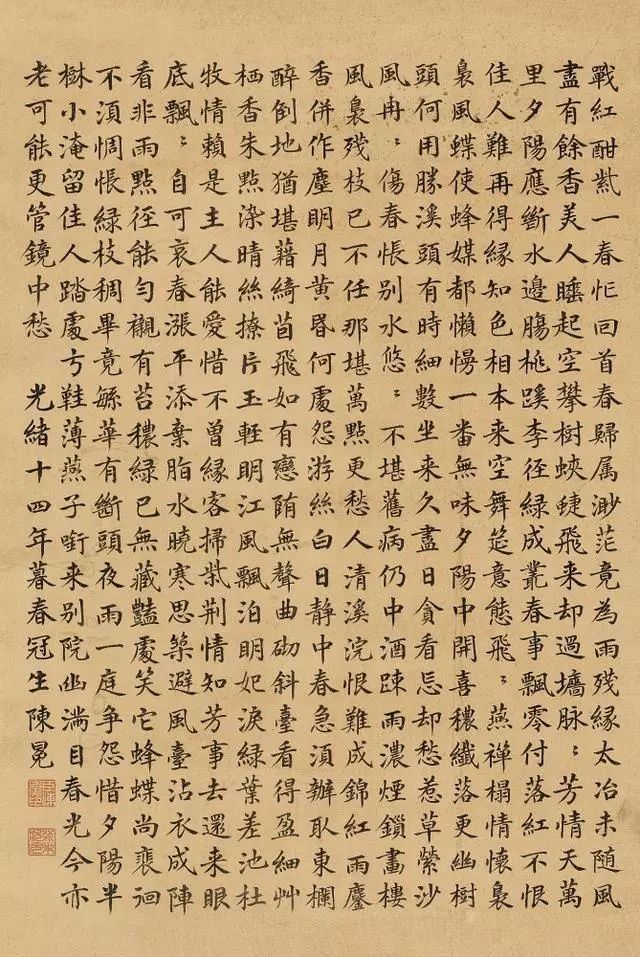 戰紅酣紫一春忙回首春歸属渺茫竟為雨残緣太冶未随風
盡有餘香美人睡起空攀樹蛺蜨飛来却過墻脉〻芳情天萬
里夕陽應斷水邊腸桃蹊李徑綠成叢春事飄零付落紅不恨
佳人難再得緣知色相本来空舞筵意態飛〻燕禪榻情懷裊
裊風蝶使蜂媒都懶慢一番無味夕陽中開喜穠纖落更幽樹
頭何用勝溪頭有時細數坐来久盡日貪看忘却愁惹草縈沙
風冉〻傷春悵別水悠〻不堪舊病仍中酒踈雨濃煙鎖畫樓
風裊残枝已不任那堪萬點更愁人清溪浣恨難成錦紅雨鏖
香併作塵明月黄昏何處怨游絲白日静中春急須辦取東欄
醉倒地猶堪藉綺茵飛如有戀陏無聲曲砌斜臺看得盈細艸
栖香朱點染晴絲撩片玉輕明江風飄泊明妃淚綠葉差池杜
牧情賴是主人能愛惜不曾緣客掃柴荆情知芳事去還来眼
底飄〻自可哀春漲平添棄脂水曉寒思築避風臺沾衣成陣
看非雨點徑能勻襯有苔穠綠已無藏豔處笑它蜂蝶尚裵徊
不須惆悵綠枝稠畢竟緐華有斷頭夜雨一庭争怨惜夕陽半
樹小淹留佳人踏處弓鞋薄燕子啣来別院幽滿目春光今亦
老可能更管鏡中愁 光緒十四年暮春冠生陳冕